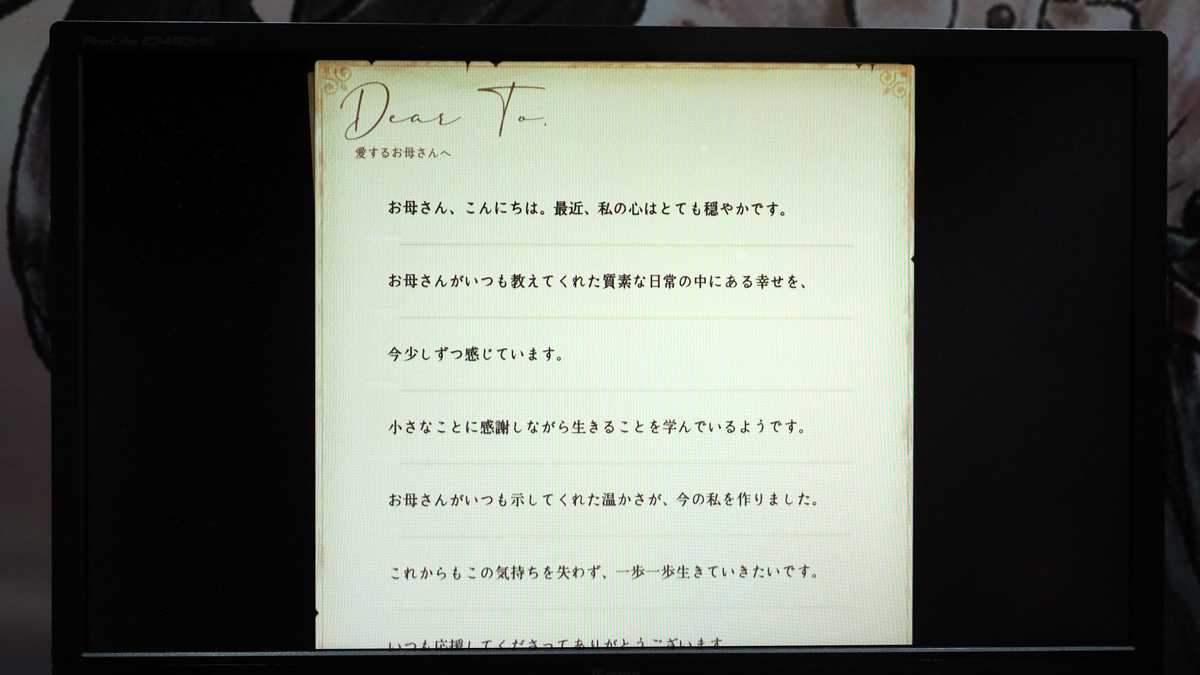 ProLite E2483HS
Dear To.
愛するお母さんへ
お母さん、こんにちは。最近、私の心はとても穏やかです。
お母さんがいつも教えてくれた質素な日常の中にある幸せを、
今少しずつ感じています。
小さなことに感謝しながら生きることを学んでいるようです。
お母さんがいつも示してくれた温かさが、今の私を作りました。
これからもこの気持ちを失わず、一歩一歩生きていきたいです。
いつも応援してくださってありがとうございます